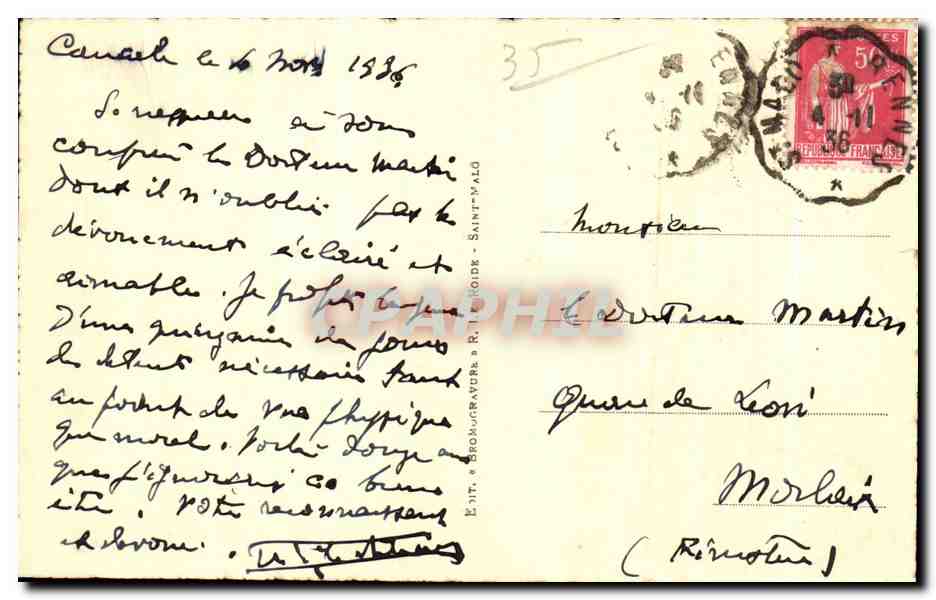 Cancale le 4 Nov 1936
35
à vous
confrère le Docteur Martin
dont il n'oublie pas le
dévouement éclairé et
aimable. Je
D'une quinzaine de jours
de détente nécessaire tant
au point de vue physique
que moral. Voilà douze ans
que j'ignorais ce bien
être. Votre reconnaissant
et dévoué.
EDIT. & BROMOGRAVURE R. LE ROIDE - SAINT-MALO
Monsieur
le Docteur Martin
Quai de Léon
Morlaix
(Finistère)
ST MALO * RENNES
4-11
36
50
REPUBLIQUE FRANÇAISE
CPAPHIL